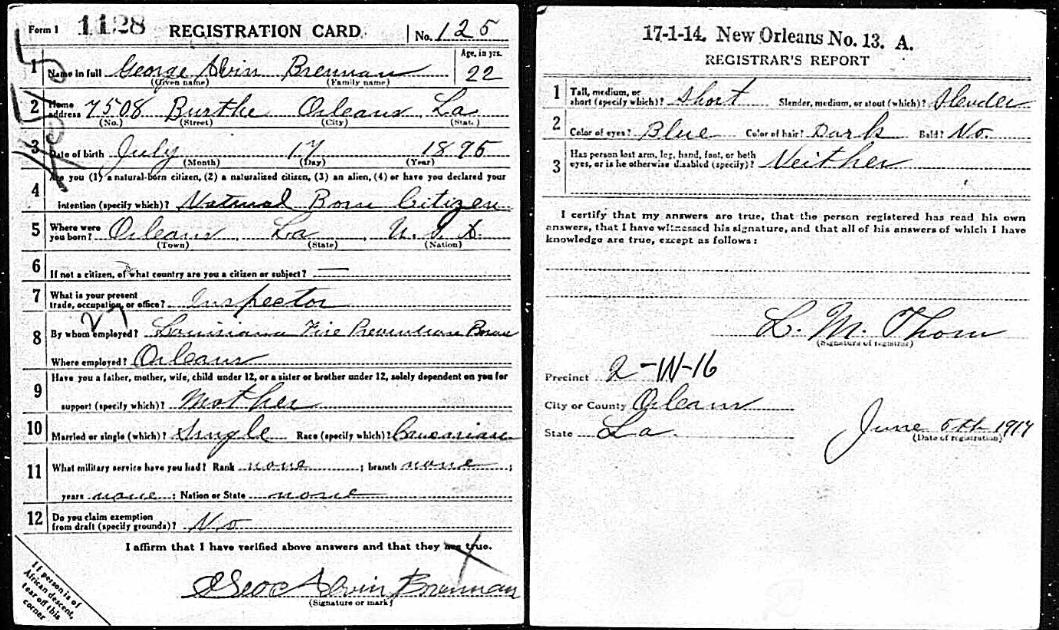 Form 1 1128 REGISTRATION CARD No. 125
1 Name in full George Alvin Brennan Age, in yrs. 22
(Given name) (Family name)
2 Home address 7508 Burthe Orleans La
(No.) (Street) (City) (State)
3 Date of birth July 17 1895
(Month) (Day) (Year)
4 Are you (1) a natural-born citizen, (2) a naturalized citizen, (3) an alien, (4) or have you declared your
intention (specify which)? Natural Born Citizen
5 Where were you born? Orleans La U.S.A.
(Town) (State) (Nation)
6 If not a citizen, of what country are you a citizen or subject? —
7 What is your present trade, occupation, or office? Inspector
27
8 By whom employed? Louisiana Fire Prevention Bureau
Where employed? Orleans
9 Have you a father, mother, wife, child under 12, or a sister or brother under 12, solely dependent on you for
support (specify which)? Mother
10 Married or single (which)? Single Race (specify which)? Caucasian
11 What military service have you had? Rank none ; branch none ;
years none ; Nation or State none
12 Do you claim exemption from draft (specify grounds)? No
I affirm that I have verified above answers and that they are true.
Geo Alvin Brennan
(Signature or mark)
If person is of
African descent,
tear off this
corner
17-1-14. New Orleans No. 13. A.
REGISTRAR'S REPORT
1 Tall, medium, or short (specify which)? Short Slender, medium, or stout (which)? Slender
2 Color of eyes? Blue Color of hair? Dark Bald? No
3 Has person lost arm, leg, hand, foot, or both eyes, or is he otherwise disabled (specify)? Neither
I certify that my answers are true, that the person registered has read his own
answers, that I have witnessed his signature, and that all of his answers of which I have
knowledge are true, except as follows:
L. M. Thom
(Signature of registrar)
Precinct 2-W-16
City or County Orleans
State La. June 5th 1917
(Date of registration)